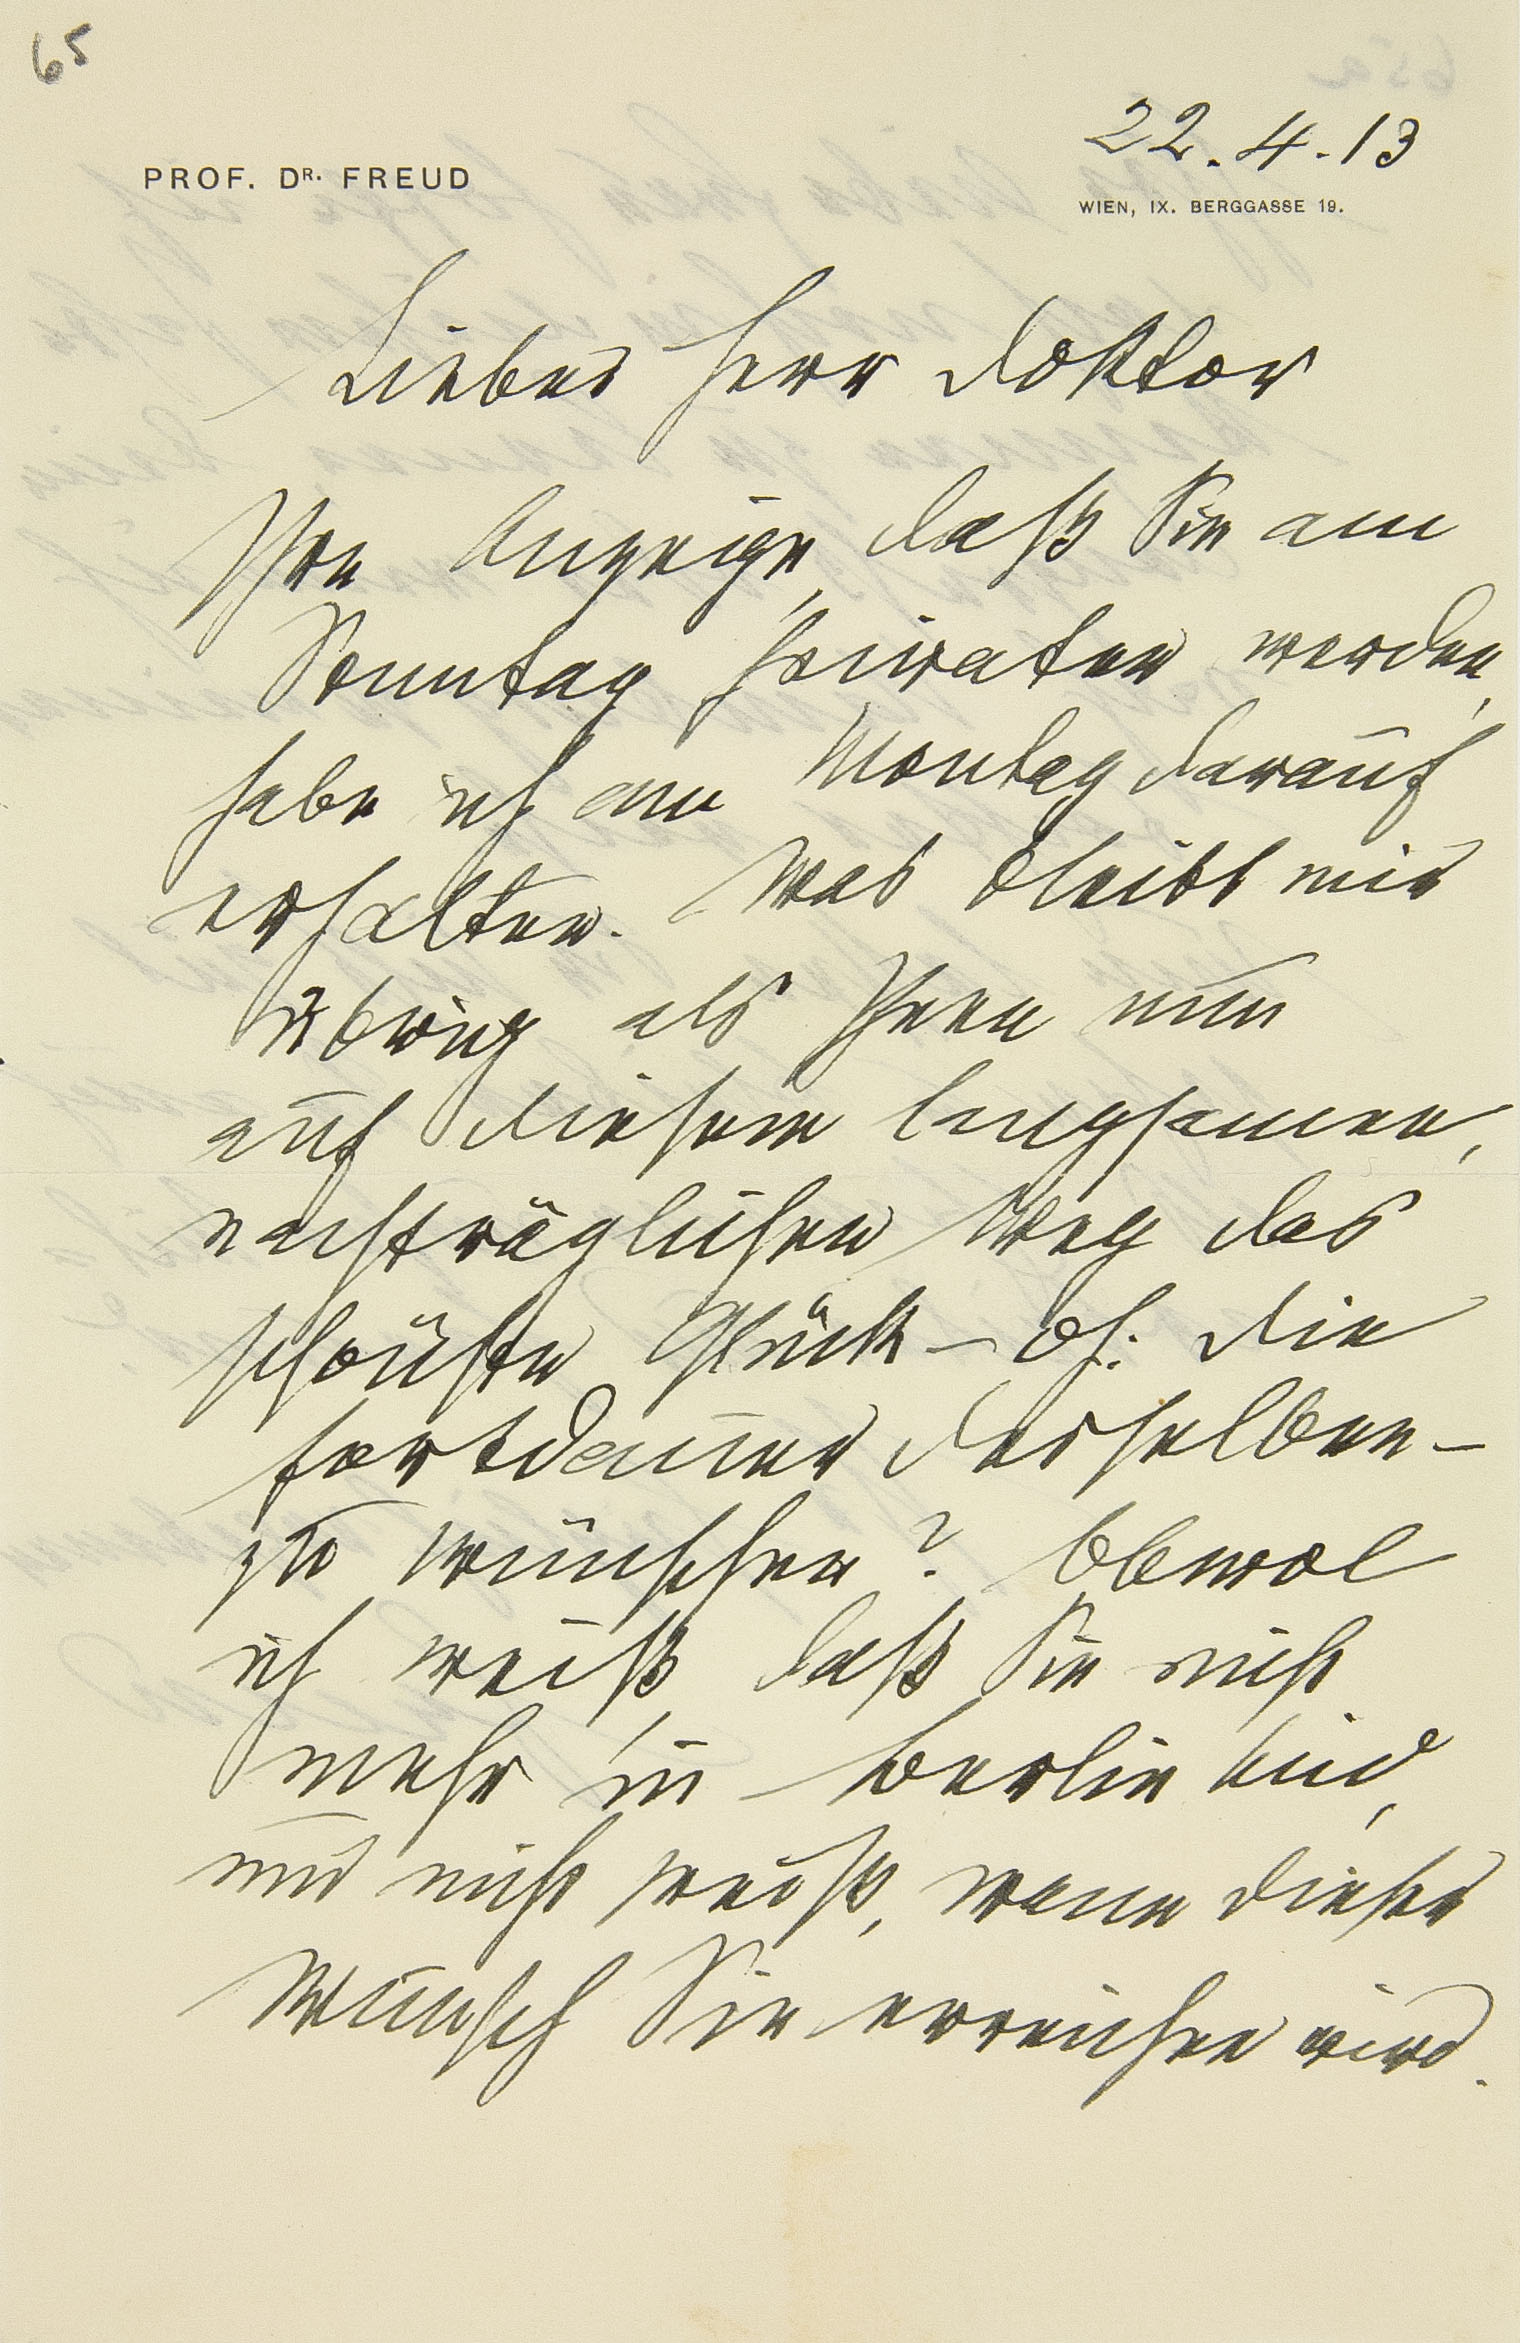 65
22.4.13
PROF. DR. FREUD
WIEN, IX. BERGGASSE 19.
Lieber Herr Doktor
Ihre Anzeige, daß Sie am
Sonntag heiraten werden,
habe ich am Montag darauf
erhalten. Was bleibt mir
übrig als Ihnen nun
auf diesem langsamen,
nachträglichen Weg das
schönste Glück – oh. die
Fortdauer desselben –
zu wünschen? Obwol
ich weiß, daß Sie nicht
mehr in Berlin sind,
und nicht weiß, wann dieser
Wunsch Sie erreichen wird.